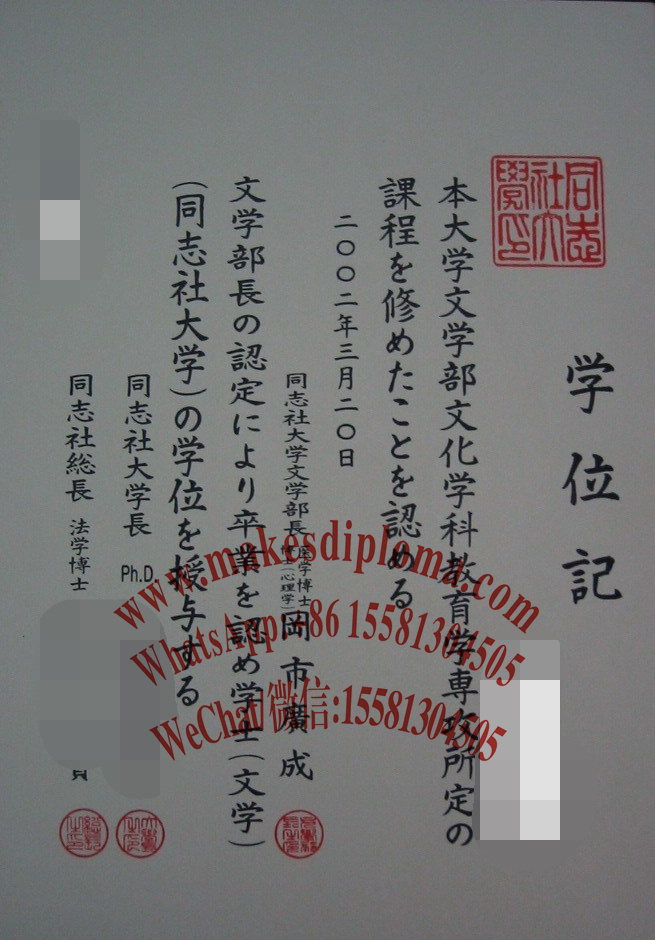 同志社大學印
学位記
本大学文学部文化学科教育学専攻所定の
課程を修めたことを認める
二〇〇二年三月二〇日
同志社大学文学部長 医学博士 博士(心理学) 岡市廣成
文学部長の認定により卒業を認め学士(文学)
(同志社大学)の学位を授与する
同志社大学長 Ph.D.
同志社総長 法学博士
www.makesdiploma.com
WhatsApp:+86 15581304505
WeChat/微信:15581304505